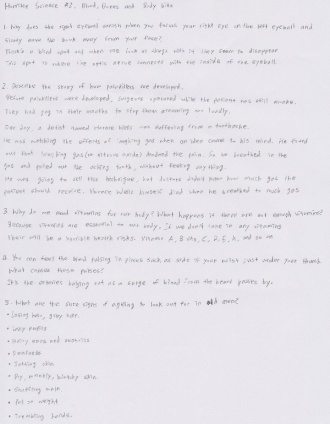 Horrible Science #2. Blood, Bones and Body bits
1. Why does the right eyeball vanish when you focus your right eye on the left eyeball and
slowly move the book away from your face?
There's a blind spot out when one look at things with it they seem to disappear.
This spot is where the optic nerve connects with the inside of the eyeball.
2. Describe the story of how painkillers are developed.
Before painkillers were developed, surgeons operated while the patients was still awake.
They had gag in their mouths to stop them screaming too loudly.
One day, a dentist named Horace Wells was suffering from a toothache.
He was watching the effects of laughing gas when an idea came to his mind. He found
out that laughing gas (or nitrous oxide) deadened the pain. So he breathed in the
gas and pulled out the aching tooth, without feeling anything.
He was going to sell this technique, but science didn't know how much gas the
patient should receive. Horace Wells himself died when he breathed to much gas.
3. Why do we need vitamins for our body? What happens if there are not enough vitamins?
Because vitamins are essential to our body. If we don't take in any vitamins
there will be a terrible health risks. Vitamin A, B, C, D, E, K, and so on.
4. You can feel the blood pulsing in places such as side of your wrist, just under your thumb.
What causes these pulses?
It's the arteries bulging out as a surge of blood from the heart passes by.
5. What are the sure signs of ageing to look out for in old men?
• Losing hair, grey hair.
• Long earlobes
• Hairy ears and nostrils
• Deafness
• Sagging skin
• Dry, wrinkly, blotchy skin.
• Shuffling walk
• Put on weight
• Trembling hands.